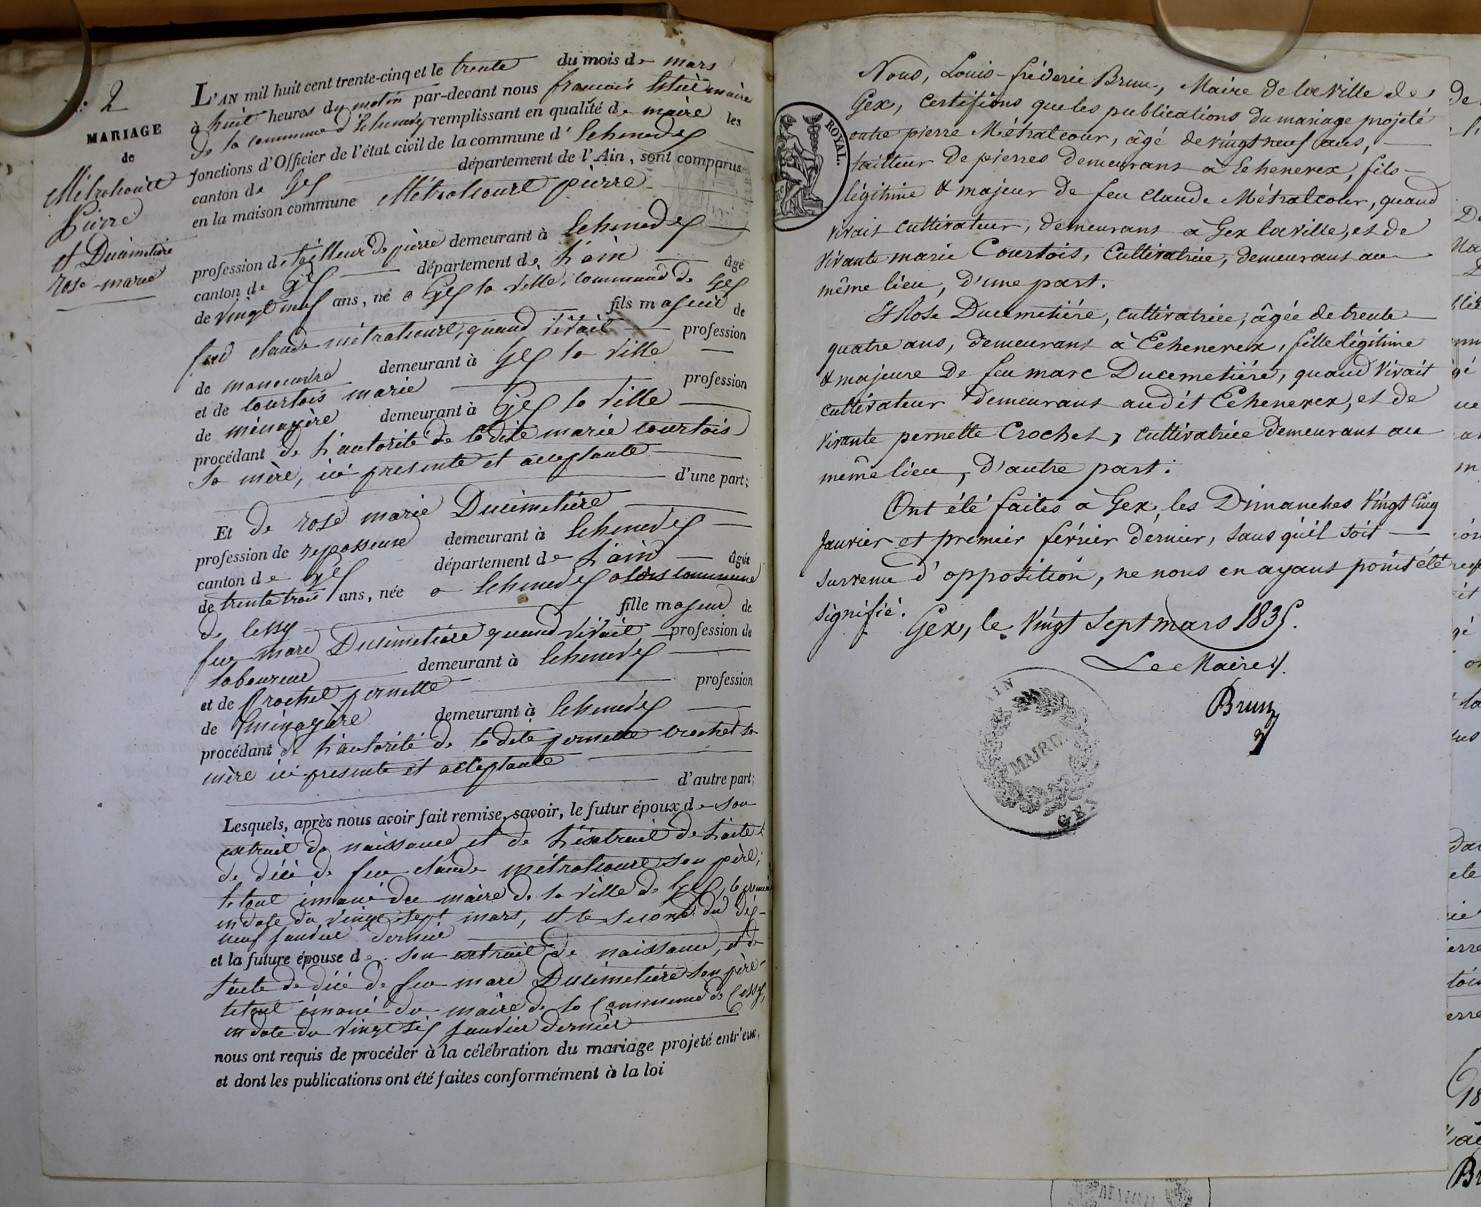 2
MARIAGE
de
Métralcourt
Pierre
et Ducimetière
rose marie
L'AN mil huit cent trente-cinq et le trente du mois de mars
à huit heures du matin par-devant nous françois maire
de la commune d'Echenevex remplissant en qualité de maire les
fonctions d'Officier de l'état civil de la commune d'Echenevex
canton de Gex département de l'Ain, sont comparus
en la maison commune Métralcourt pierre
profession de tailleur de pierre demeurant à Echenevex
canton de Gex département de l'ain âgé
de vingt neuf ans, né à Gex la ville, commune de Gex
fils majeur de
feu claude métralcourt, quand vivait profession
de manoeuvre demeurant à Gex la ville
et de Courtois marie profession
de ménagère demeurant à Gex la ville
procédant de l'autorité de la dite marie courtois
sa mère, ici présente et acceptante
d'une part;
Et de rose marie Ducimetière
profession de repasseuse demeurant à Echenevex
canton de Gex département de l'ain âgée
de trente trois ans, née à Echenevex alors commune
de Cessy fille majeur de
feu marc Ducimetière quand vivait profession de
laboureur demeurant à Echenevex
et de Crochet pernette profession
de ménagère demeurant à Echenevex
procédant de l'autorité de la dite pernette crochet sa
mère ici présente et acceptante
d'autre part;
Lesquels, après nous avoir fait remise, savoir, le futur époux de son
extrait de naissance et de l'extrait de l'acte
de décé de feu claude métralcourt son père;
le tout émané du maire de la ville de Gex, le premier
en date du vingt sept mars, et le second du dix-
neuf janvier dernier
et la future épouse de son extrait de naissance, et de
l'acte de décé de feu marc Ducimetière son père
le tout émané du maire de la Commune de Cessy,
en date du vingt six janvier dernier
nous ont requis de procéder à la célébration du mariage projeté entr'eux,
et dont les publications ont été faites conformément à la loi
ROYAL.
Nous, Louis-fréderic Brun, Maire de la ville de
Gex, certifions que les publications du mariage projeté
entre pierre Métralcour, âgé de vingt neuf ans,
tailleur de pierres demeurans à Echenevex, fils
légitime & majeur de feu Claude Métralcour, quand
vivait cultivateur, demeurans à Gex la ville, et de
vivante marie Courtois, Cultivatrice, demeurans au
même lieu, d'une part.
Et Rose Ducimetière, cultivatrice, âgée de trente
quatre ans, demeurans à Echenevex, fille légitime
& majeure de feu marc Ducemetière, quand vivait
cultivateur demeurans audit Echenevex, et de
vivante pernette Crochet, cultivatrice demeurans au
même lieu, d'autre part.
Ont été faites à Gex, les Dimanches vingt cinq
Janvier et premier février dernier, sans qu'il soit
survenu d'opposition, ne nous en ayans point été
signifié.
Gex, le vingt sept mars 1835.
Le Maire
Brun
AIN
MAIRIE
GEX